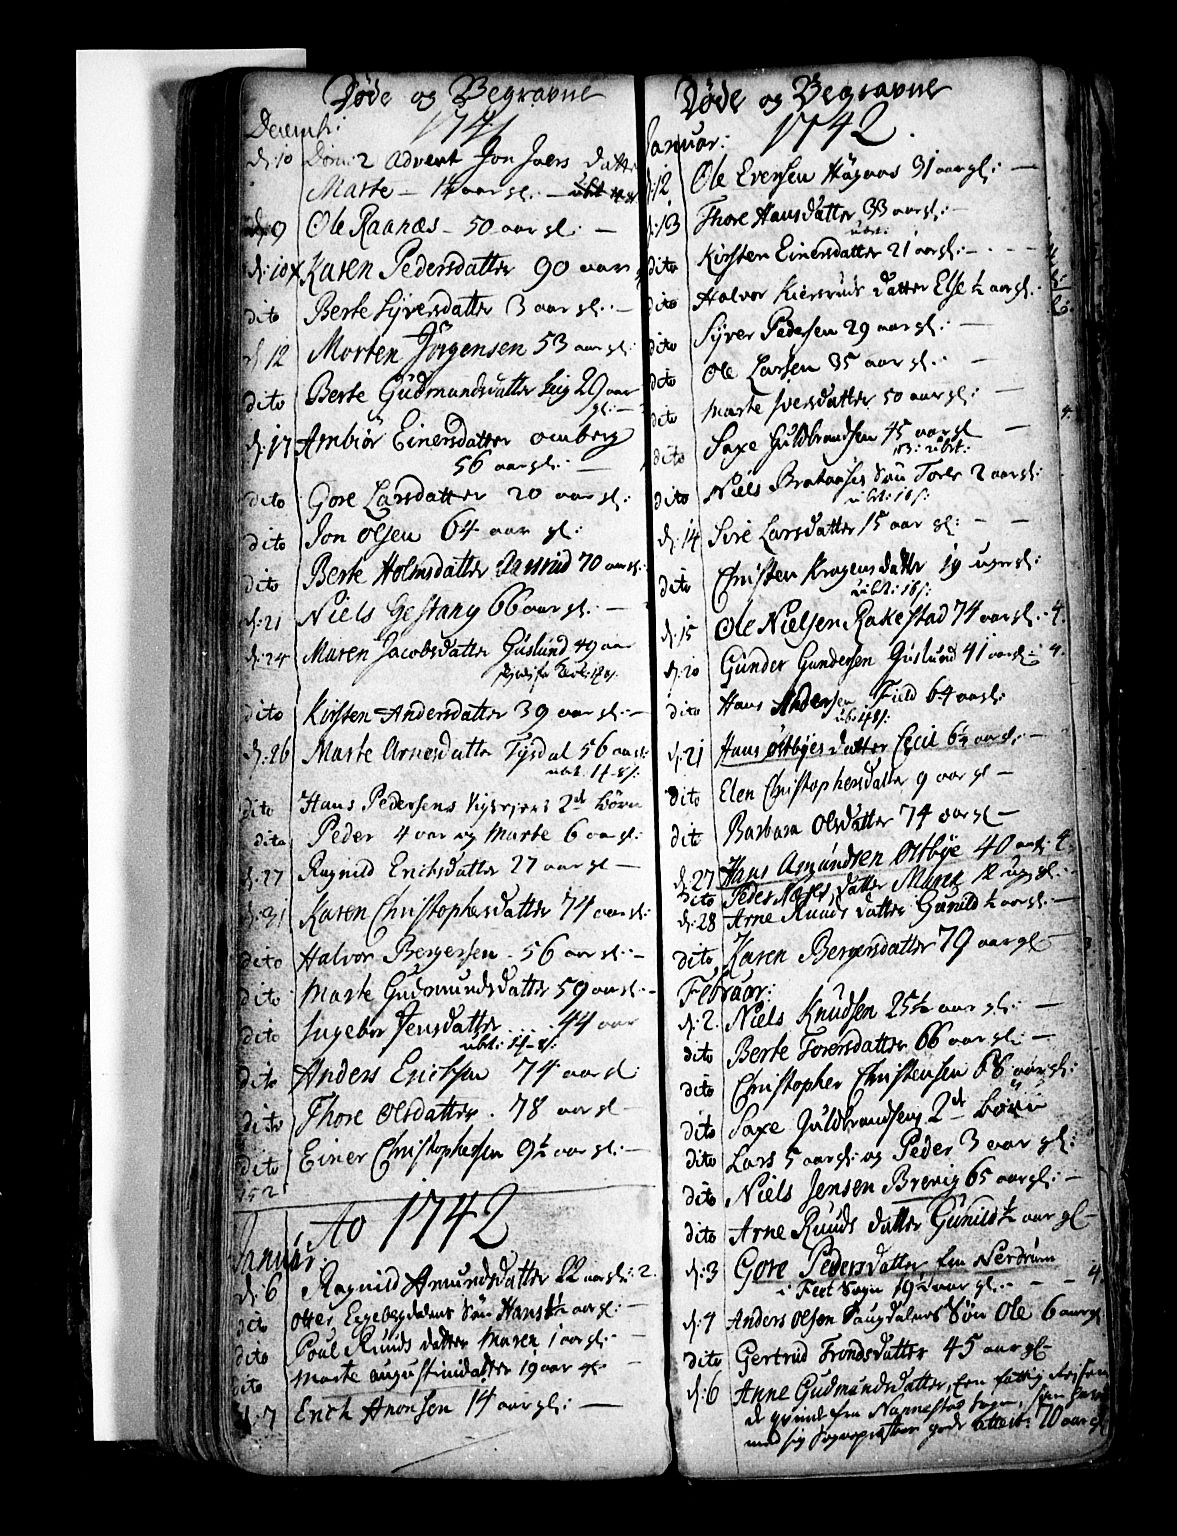 Døde og Begravne
1741
Decemb:
d: 10 Dom: 2 Advent Jon Joers datter
Marte – 14 aar gl: –
d: 9 Ole Raanæs – 50 aar gl: –
d: 10 Karen Pedersdatter 90 aar
dito Berte Syversdatter 3 aar gl: –
d: 12 Morten Jørgensen 53 aar gl:
dito Berte Gudmundsdatter 29 aar
gl: –
d: 17 Ambiør Einersdatter omberg
56 aar gl: –
dito Gore Larsdatter 20 aar gl:
dito Jon Olsen 64 aar gl:
dito Berte Holmsdatter 70 aar gl
d: 21 Niels Gestang 66 aar gl: –
d: 24 Maren Jacobsdatter Guslund 49 aar
dito Kirsten Andersdatter 39 aar gl: –
d: 26 Marte Arnesdatter Tysdal 56 aar gl:
ubt: 14 s:
dito Hans Pedersens 2de børn
dito Peder 4 aar og Marte 6 aar gl:
d: 27 Ragnild Erichsdatter 27 aar gl –
d: 31 Karen Christophersdatter 74 aar gl:
dito Halvor Bergersen . 56 aar gl: –
dito Marte Gudmundsdatter 59 aar gl: –
dito Ingebor Jensdatter .... 44 aar
dito Anders Erichsen 74 aar gl
dito Thore Olsdatter . 78 aar gl –
dito Einer Christophersen 9½ aar gl: –
152
Ao 1742
Januar:
d: 6 Ragnild Amundsdatter 22 aar gl: 2
dito Otter Eggebegdalens Søn Hans ½ aar gl: –
dito Poul Ruuds datter Maren 1 aar gl: –
dito Marte augustinidatter 19 aar gl –
d: 7 Erich Aronsen 14 aar gl: –
Døde og Begravne
1742.
Januar:
d: 12 Ole Evensen Høgaas 31 aar gl: –
d: 13 Thore Hansdatter 33 aar gl: –
ubt:
dito Kirsten Einersdatter 21 aar gl: –
dito Halvor Kiersruds datter Else ½ aar gl:
dito Syver Pedersen 29 aar gl: –
dito Ole Larsen 35 aar gl: –
dito Marte Iversdatter 50 aar gl: –
dito Saxe Guldbrandsen 45 aar gl –
dito Niels Brataases Søn Tore 2 aar gl:
ubt: 16 s:
d: 14 Siri Larsdatter 15 aar gl: –
dito Christen Krogens datter 19 uger gl:
ubt: 16 s:
d: 15 Ole Nielsen Rakestad 74 aar gl: 4.
d: 20 Gunder Gundersen Guslund 41 aar gl: 4.
dito Hans Andersen Field 64 aar gl:
d: 21 Hans Østbyes datter Cecil 6½ aar gl: –
dito Elen Christophersdatter 9 aar gl –
dito Barbara Olsdatter 74 aar gl –
d: 27 Hans Asmundsen Østbye 40 aar gl 4.
dito Peder Næses datter Maria 12 uger gl: –
d: 28 Arne Ruuds datter Gunild ½ aar gl: –
dito Karen Bergersdatter 79 aar gl –
Februar:
d: 2. Niels Knudsen 25½ aar gl: –
dito Berte Torersdatter 66 aar gl:
dito Christopher Christensen 68 aar gl:
dito Saxe Guldbrandsens 2de børn
dito Lars 5 aar gl: og Peder 3 aar gl:
dito Niels Jensen Brevig 65 aar gl: –
dito Arne Ruuds datter Gunild ½ aar gl –
d: 3 Gore Pedersdatter fra Nerdrum
i Feet Sogn 19½ aar gl: – – 4.
d: 4 Anders Olsen Haugdalens Søn Ole 6 aar gl
dito Gertrud Trondsdatter 45 aar gl –
d: 6 Anne Gudmundsdatter, Een fattig
fra Nannestad Sogn, som havde
med sig Sognepræstens gode attest: 70 aar gl